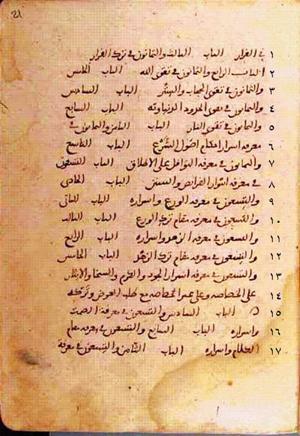 21
١ في الفرار الباب الثالث والثمانون في ترك الفرار
٢ الباب الرابع والثمانون في تقوى الله الباب الخامس
٣ والثمانون في تقوى الحجاب والستر الباب السادس
٤ والثمانون في تقوى الحدود الدنياوية الباب السابع
٥ والثمانون في تقوى النار الباب الثامن والثمانون في
٦ معرفة اسرار احكام اصول الشرع الباب التاسع
٧ والثمانون في معرفة النوافل على الاطلاق الباب التسعون
٨ في معرفة اسرار الفرائض والسنن الباب الحادي
٩ والتسعون في معرفة الورع واسراره الباب الثاني
١٠ والتسعون في معرفة مقام ترك الورع الباب الثالث
١١ والتسعون في معرفة الزهد واسراره الباب الرابع
١٢ والتسعون في معرفة مقام ترك الزهد الباب الخامس
١٣ والتسعون في معرفة اسرار الجود والكرم والسخا والايثار
١٤ على الخصاصة وعلى غير الخصاصة مع طلب العوض وتركه
١٥ الباب السادس والتسعون في معرفة الصمت
١٦ واسراره الباب السابع والتسعون في معرفة مقام
١٧ الكلام واسراره الباب الثامن والتسعون في معرفة